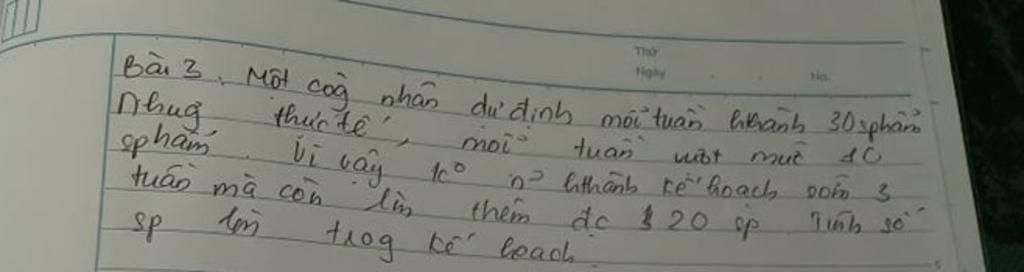 Thứ
Ngày No.
Bài 3. Một côg nhân dự định mỗi tuần hthành 30 sphẩm
Nhưg thực tế, mỗi tuần vượt mức 10
sphẩm. Vì vậy ko n~ hthành kế hoạch sớm 3
tuần mà còn làm thêm đc 20 sp. Tính số
sp làm trog kế hoạch.